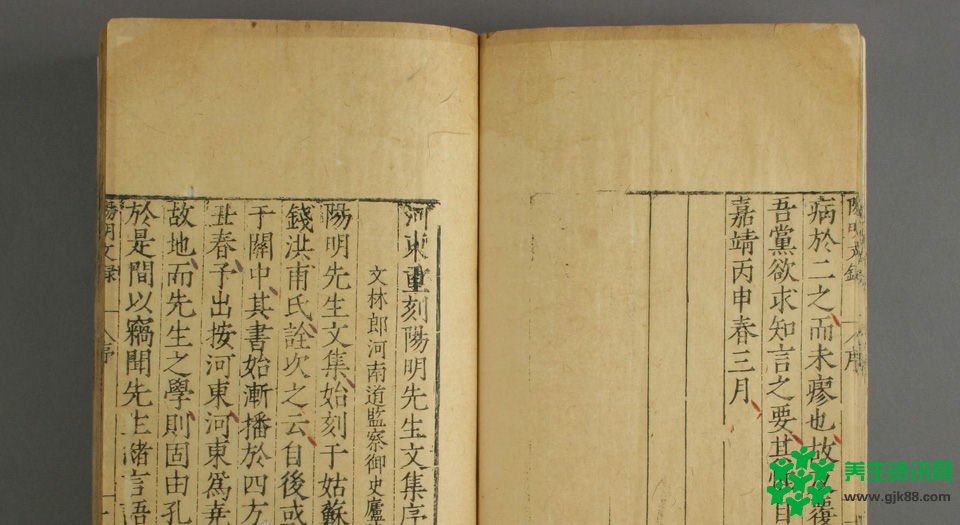 陽明文錄 序
病於二之而未瘳也故
吾黨欲求知言之要其
嘉靖丙申春三月
河東重刻陽明先生文集序
文林郎河南道監察御史廬
陽明先生文集始刻于姑蘇
錢洪甫氏詮次之云自後或
于關中其書始漸播於四方
丑春予出按河東河東爲堯
故地而先生之學則固由孔
於是間以竊聞先生緒言吾
陽明文録 序
养生资讯网
www.gjk88.com